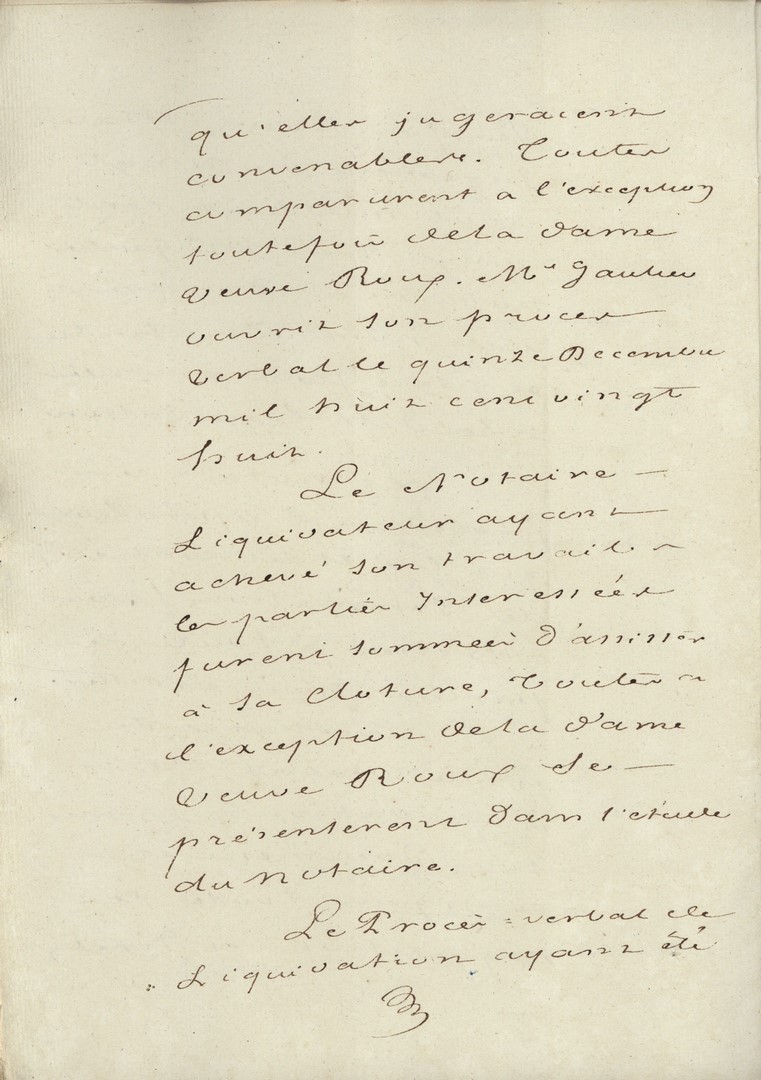 qu'elles jugeraient
convenables. Toutes
comparurent a l'exception
toutefois dela dame
veuve Roux. Me Gaulieu
ouvrit son proces
verbal le quinze Decembre
mil huit cent vingt
huit.
Le Notaire —
Liquidateur ayant —
achevé son travail ~
les parties Interessées
furent sommées d'assister
à sa Cloture, Toutes ~
l'exception dela dame
veuve Roux se —
présenterent dans l'étude
du Notaire.
Le Procès = verbal de
Liquidation ayant été